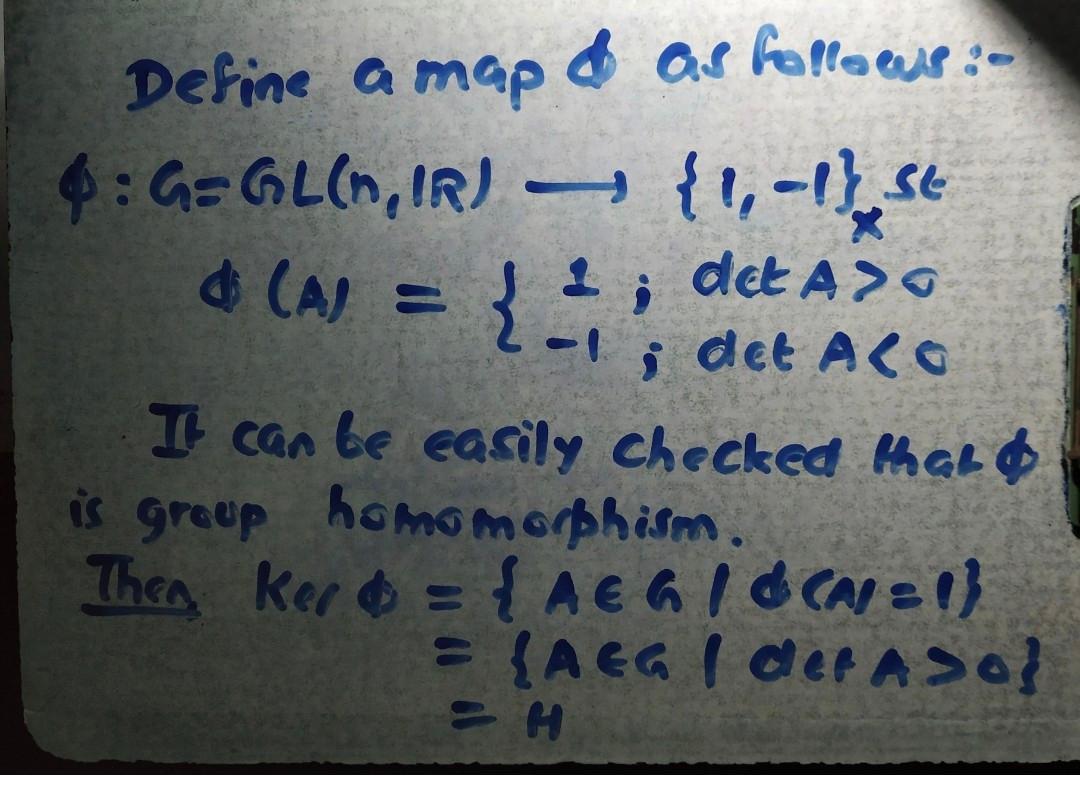 Define a map ϕ as follows :-
ϕ : G = GL(n, IR) ⟶ {1, -1}ₓ st
ϕ (A) = { 1 ; det A > 0
-1 ; det A < 0
It can be easily checked that ϕ
is group homomorphism.
Then Ker ϕ = { A ∈ G | ϕ(A) = 1}
= {A ∈ G | det A > 0}
= H